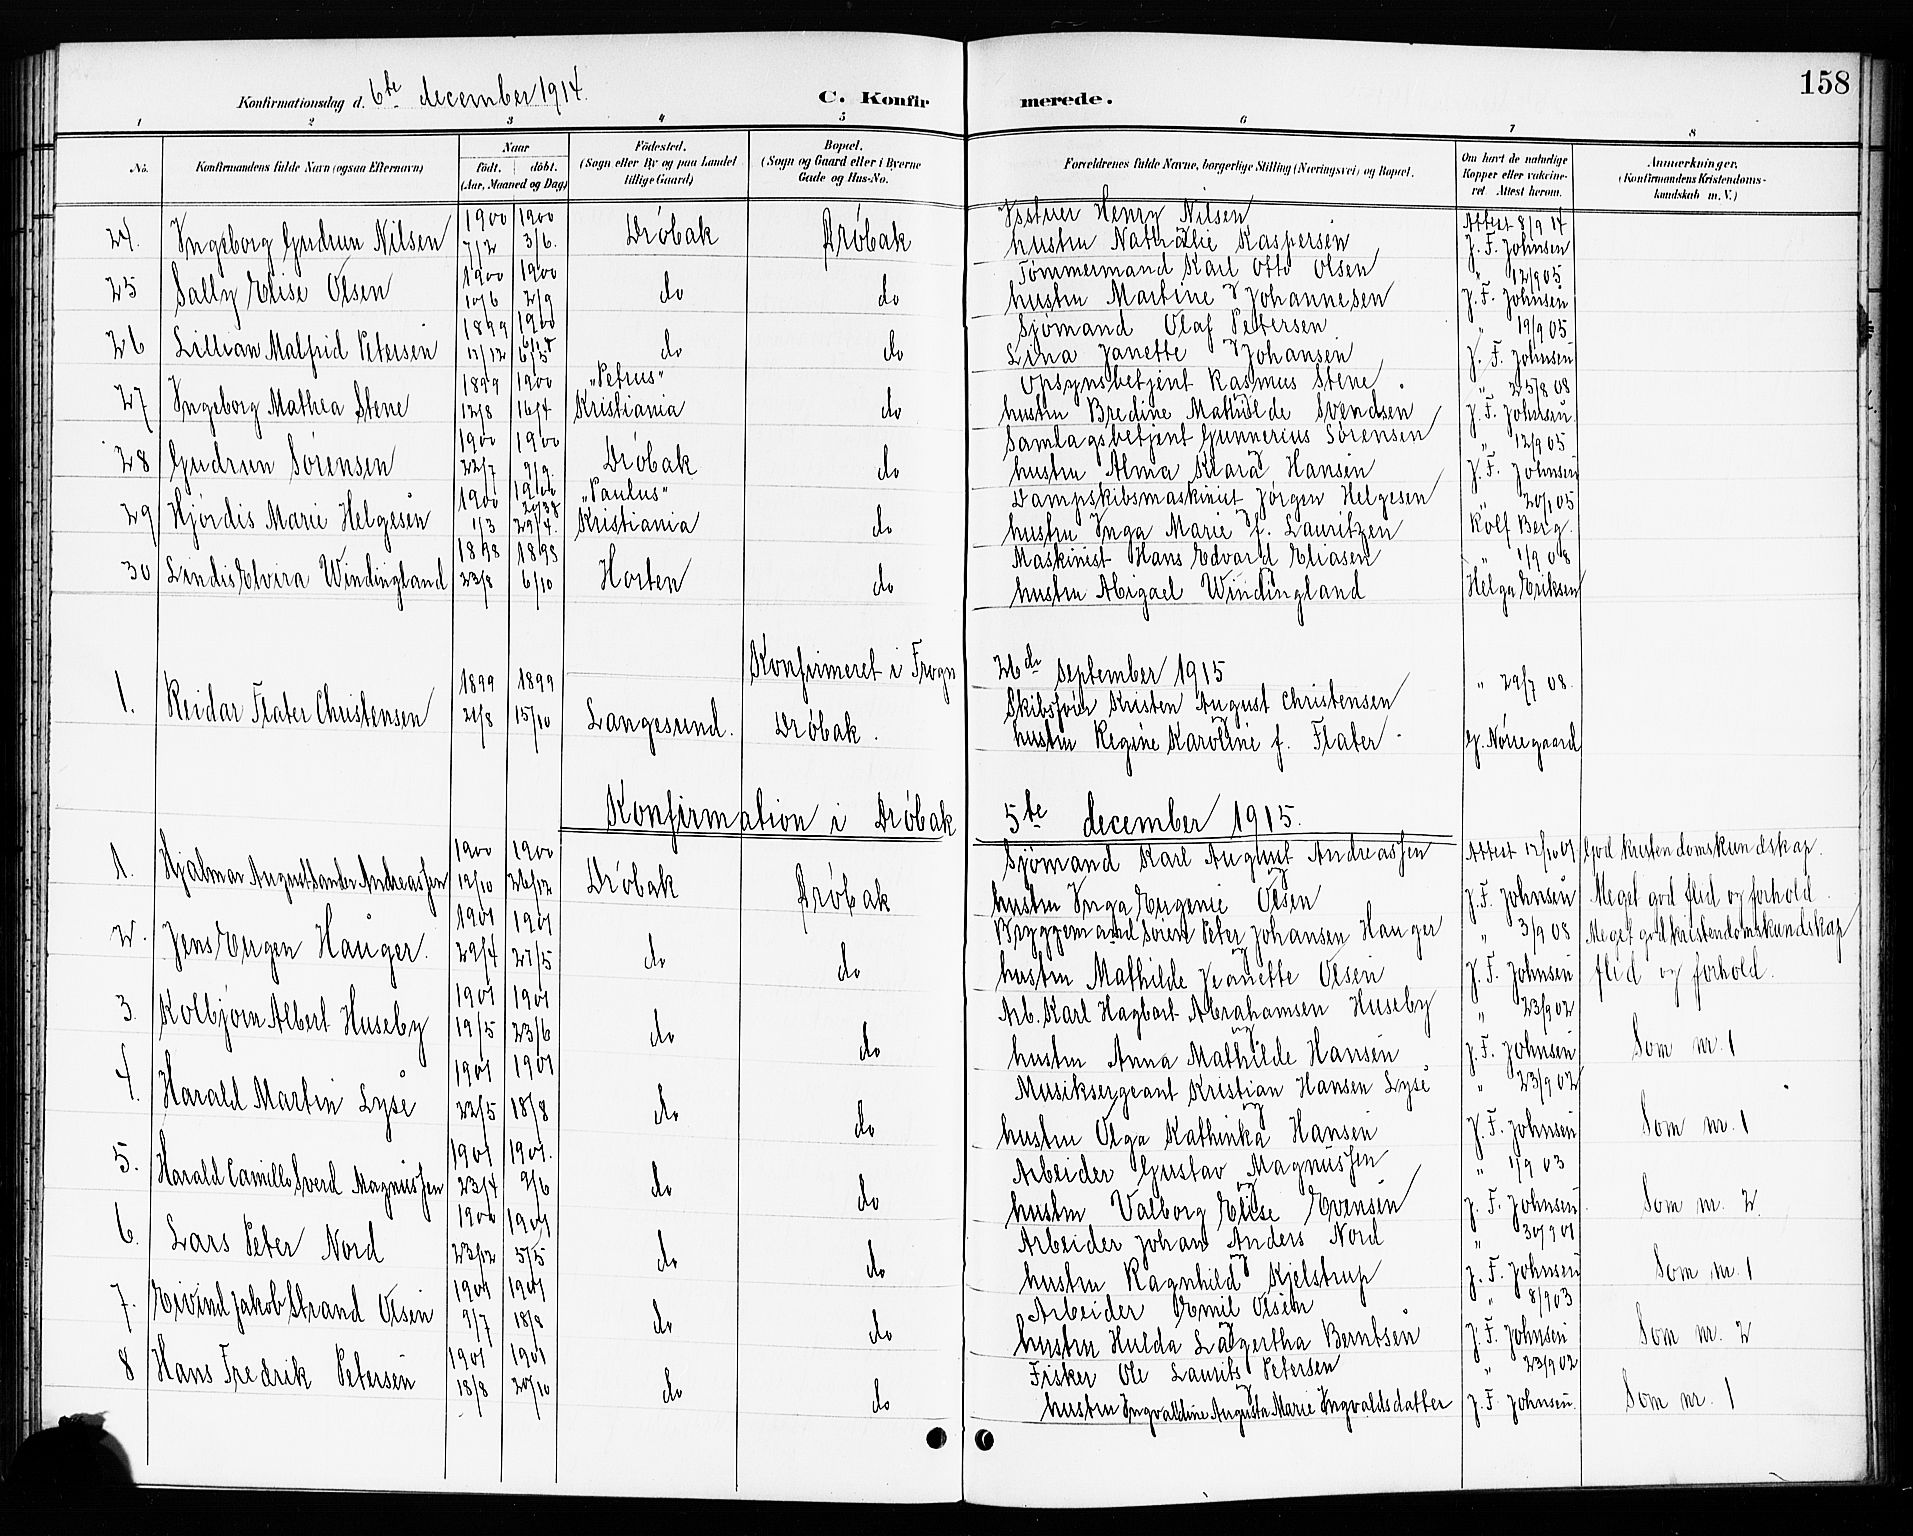 158
Konfirmationsdag d. 6te december 1914. C. Konfirmerede.
1 2 3 4 5 6 7 8
No. Konfirmandens fulde Navn (ogsaa Efternavn) Naar født. døbt. (Aar, Maaned og Dag) Fødested. (Sogn eller By og paa Landet tillige Gaard) Bopæl. (Sogn og Gaard eller i Byerne Gade og Hus-No. Forældrenes fulde Navne, borgerlige Stilling (Næringsvei) og Bopæl. Om havt de naturlige Kopper eller vaccineret Attest herom. Anmærkninger. (Konfirmandens Kristendomskundskab m. V.)
24. Ingeborg Gudrun Nilsen 1900 7/2 1900 3/6. Drøbak Drøbak Henry Nilsen Attest 8/9 14
hustru Nathalie Kaspersen J. F. Johnsen
25 Sally Elise Olsen 1900 10/6 1900 2/9 do do Tømmermand Karl Otto Olsen " 12/9 05
hustru Martine Johannesen J. F. Johnsen
26 Lillian Malfrid Petersen 1899 1900 do do Sjømand Olaf Petersen " 19/9 05
Lina Janette Johansen J. F. Johnsen
27 Ingeborg Mathea Stene 1899 12/8 1900 16/4 "Petrus" Kristiania do Opsynsbetjent Rasmus Stene " 25/8 08
hustru Bredine Mathilde Svendsen J. F. Johnsen
28 Gudrun Sørensen 1900 22/7 1900 9/9. Drøbak do Samlagsbetjent Gunnerius Sørensen " 12/9 05
hustru Alma Klara Hansen J. F. Johnsen
29 Hjørdis Marie Helgesen 1900 1/3 1900 29/4. "Paulus" Kristiania do Dampskibsmaskinist Jørgen Helgesen " 20/1 05
hustru Inga Marie f. Lauritzen Rolf Berg.
30 Lindis Elvira Windingland 1898 23/8 1898 6/10 Horten do Maskinist Hans Edvard Eliasen " 1/9 08
hustru Abigael Windingland Helga Eriksen
Konfirmeret i Frogn 26de september 1915
1. Reidar Flater Christensen 1899 21/8 1899 15/10 Langesund. Drøbak. Skibsfører Kristen August Christensen " 29/7 08.
hustru Regine Karoline f. Flater. G. Nørregaard
Konfirmation i Drøbak 5te december 1915.
1. Hjalmar August Sander Andreassen 1900 19/10 1900 26/12 Drøbak Drøbak Sjømand Karl August Andreassen Attest 12/10 01 God kristendomskundskap.
hustru Inga Eugenie Olsen J. F. Johnsen Meget god flid og forhold.
2. Jens Ergen Hauger. 1901 29/4 1901 27/5 do do Bryggemand Søren Peter Johansen Hauger " 3/9 08 Meget god kristendomskundskap
hustru Mathilde Jeanette Olsen J. F. Johnsen flid og forhold.
3. Kolbjørn Albert Huseby 1901 19/5 1901 23/6 do do Arb. Karl Hagbart Abrahamsen Huseby " 23/9 02
hustru Anna Mathilde Hansen J. F. Johnsen Som nr. 1
4. Harald Martin Lyse 1901 22/5 1901 18/8 do do Musiksergeant Kristian Hansen Lyse " 23/9 02
hustru Olga Kathinka Hansen J. F. Johnsen Som nr. 1
5. Harald Camillo Sverd Magnussen 1901 23/4 1901. 9/6 do do Arbeider Gustav Magnussen " 1/9 03
hustru Valborg Elise Evensen J. F. Johnsen Som nr. 2
6. Lars Peter Nord 1900 23/12 1901 5/5 do do Arbeider Johan Anders Nord " 30/9 01
hustru Ragnhild Kjelstrup J. F. Johnsen Som nr. 1
7. Eivind Jakob Strand Olsen 1901 9/7 1901 18/8 do do Arbeider Emil Olsen " 8/9 03
hustru Hulda Lagertha Berntsen J. F. Johnsen Som nr. 2
8 Hans Fredrik Petersen 1901 18/8 1901 20/10 do do Fisker Ole Laurits Petersen " 23/9 02
hustru Ingvaldine Augusta Marie Ingvaldsdatter J. F. Johnsen. Som nr. 1